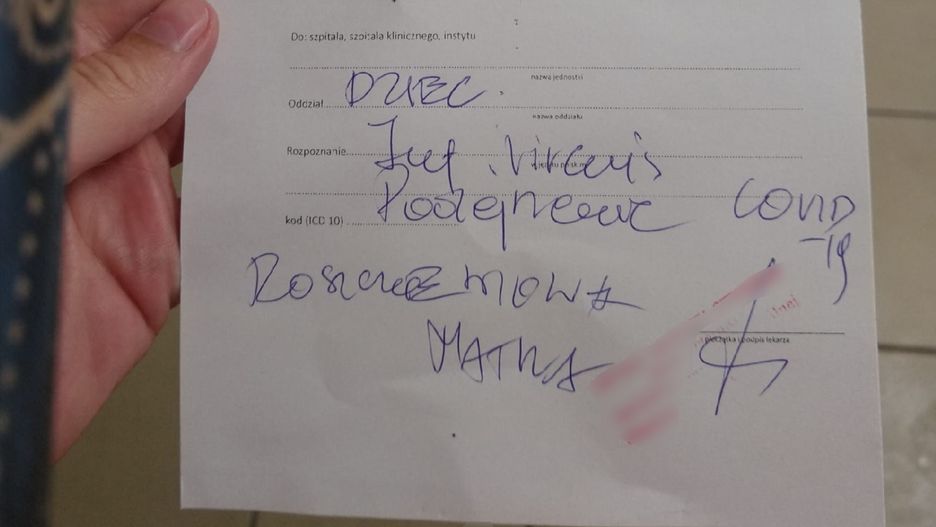 Do: szpitala, szpitala klinicznego, instytu
nazwa jednostki
Oddział DZIEC.
nazwa oddziału
Rozpoznanie Inf. Viralis
Podejrzenie COVID
-19
kod (ICD 10)
MATKA
pieczątka i podpis lekarza